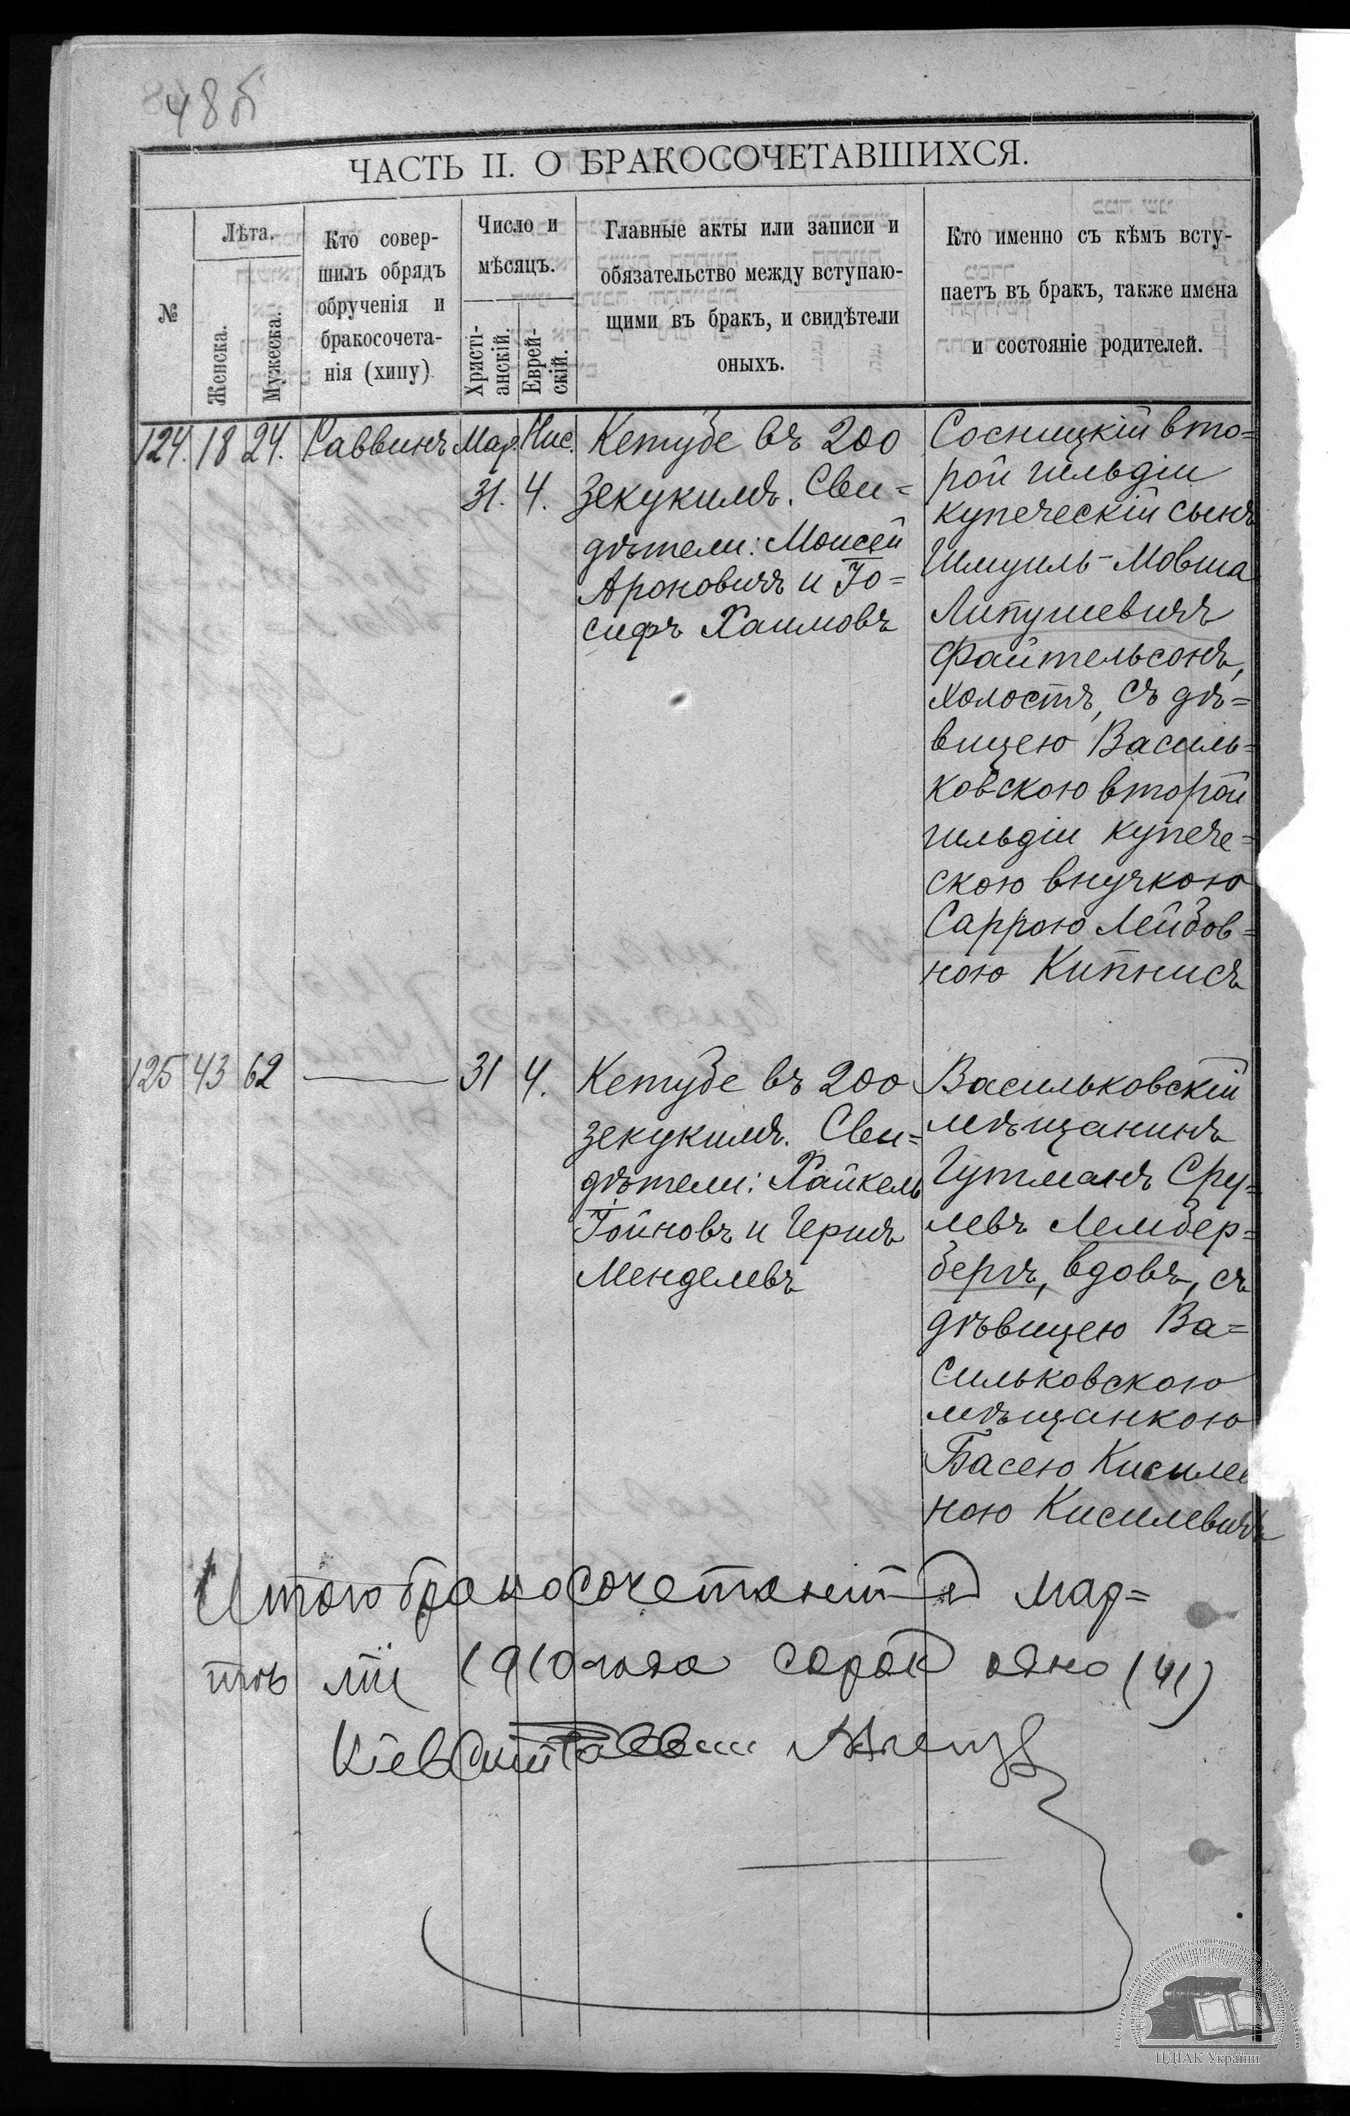 48б
ЧАСТЬ II. О БРАКОСОЧЕТАВШИХСЯ.
№
Лѣта.
Женска.
Мужеска.
Кто совер-
шилъ обрядъ
обрученія и
бракосочета-
нія (хипу)
Число и
мѣсяцъ.
Христі-
анскій.
Еврей-
скій.
Главные акты или записи и
обязательство между вступаю-
щими въ бракъ, и свидѣтели
оныхъ.
Кто именно съ кѣмъ всту-
паетъ въ бракъ, также имена
и состояніе родителей.
124. 18 24. Раввинъ Мар. Нис.
31. 4.
Кетубе въ 200
зекукимъ. Сви=
дѣтели: Моисей
Ароновичъ и Іо=
сифъ Хаимовъ
Сосницкій вто=
рой гильдіи
купеческій сынъ
Шмуиль-Мовша
Липушевичъ
Файтельсонъ,
холостъ, съ дѣ=
вицею Василь=
ковскою второй
гильдіи купече=
скою внучкою
Саррою Лейбов=
ною Кипнисъ
125 43 62 — 31 4.
Кетубе въ 200
зекукимъ. Сви=
дѣтели: Хайкель
Гойновъ и Гершъ
Менделевъ
Васильковскій
мѣщанинъ
Гутманъ Сру=
левъ Лембер=
бергъ, вдовъ, съ
дѣвицею Ва=
сильковскою
мѣщанкою
Басею Кисилев
ною Кисилевичъ
Итого бракосочетаній въ мар=
тѣ м-цѣ 1910 года сорок одно (41)
Кіевскій Раввин
ЦДІАК України